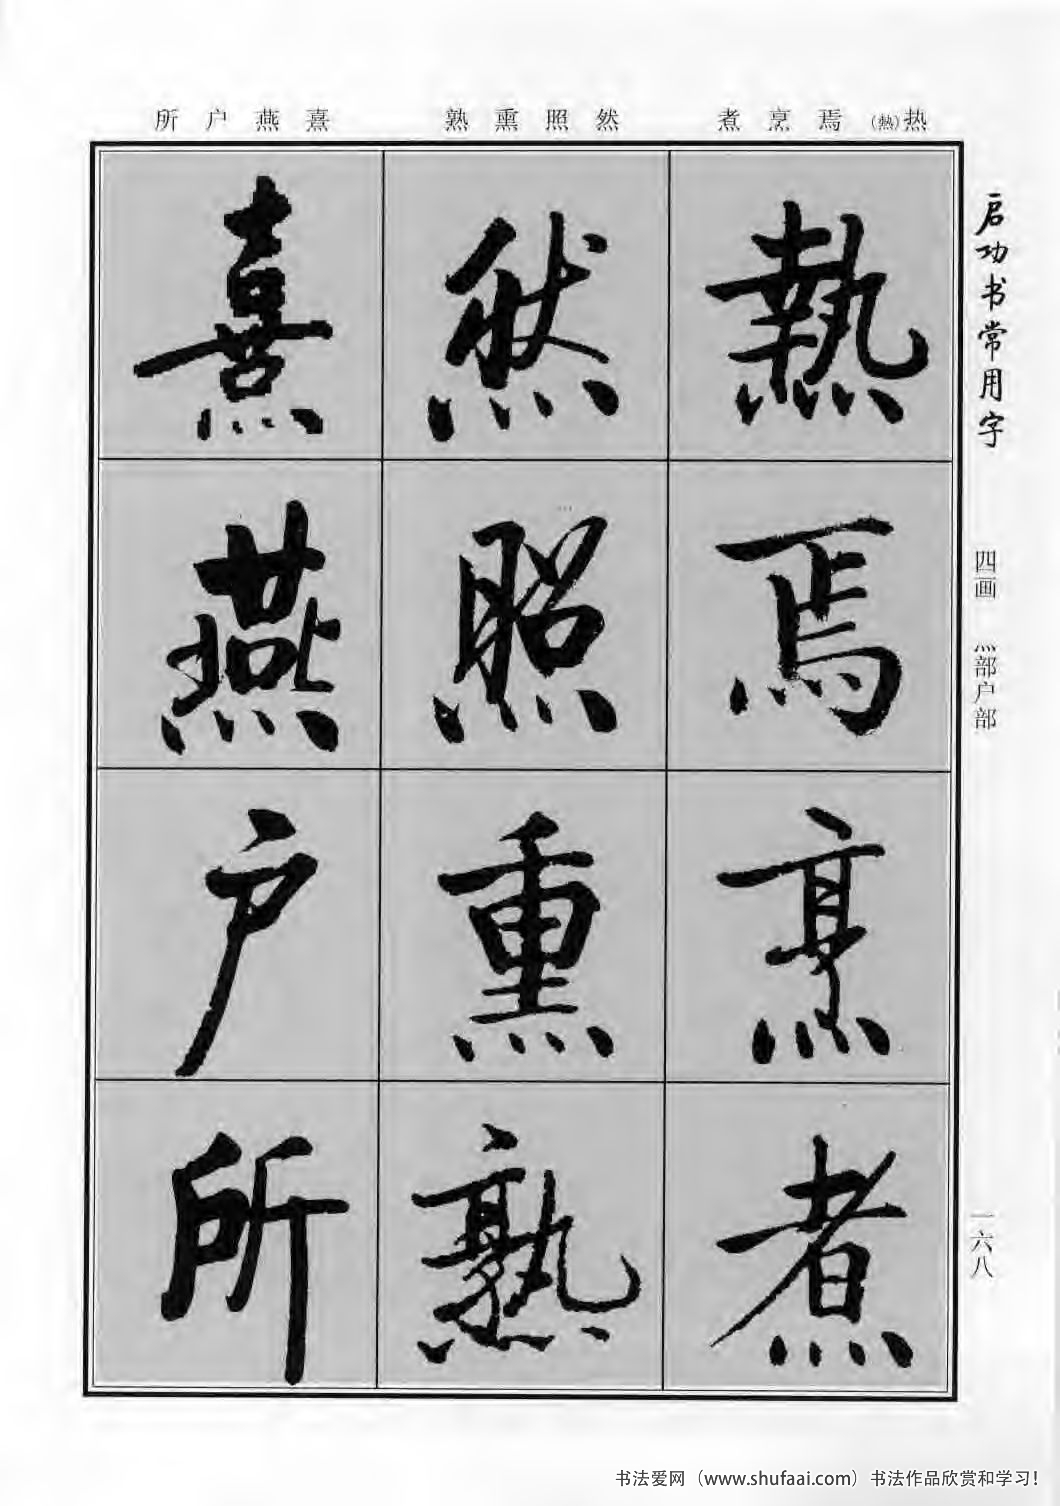 所户燕熹 熟熏照然 煮烹焉(熱)热
熱
焉
烹
煮
然
照
熏
熟
熹
燕
户
所
启功书常用字
四画 灬部户部
一六八
书法爱网（www.shufaai.com）书法作品欣赏和学习！